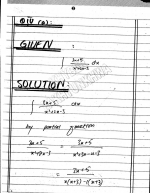 Q:1 (a):
GIVEN :
∫ 3x+5 / x²+2x-3 dx
SOLUTION:
∫ 3x+5 / x²+2x-3 dx
by partial
3x+5 / x²+2x-3 = 3x+5 / x²+3x-x-3
= 3x+5 / x(x+3)-1(x+3)